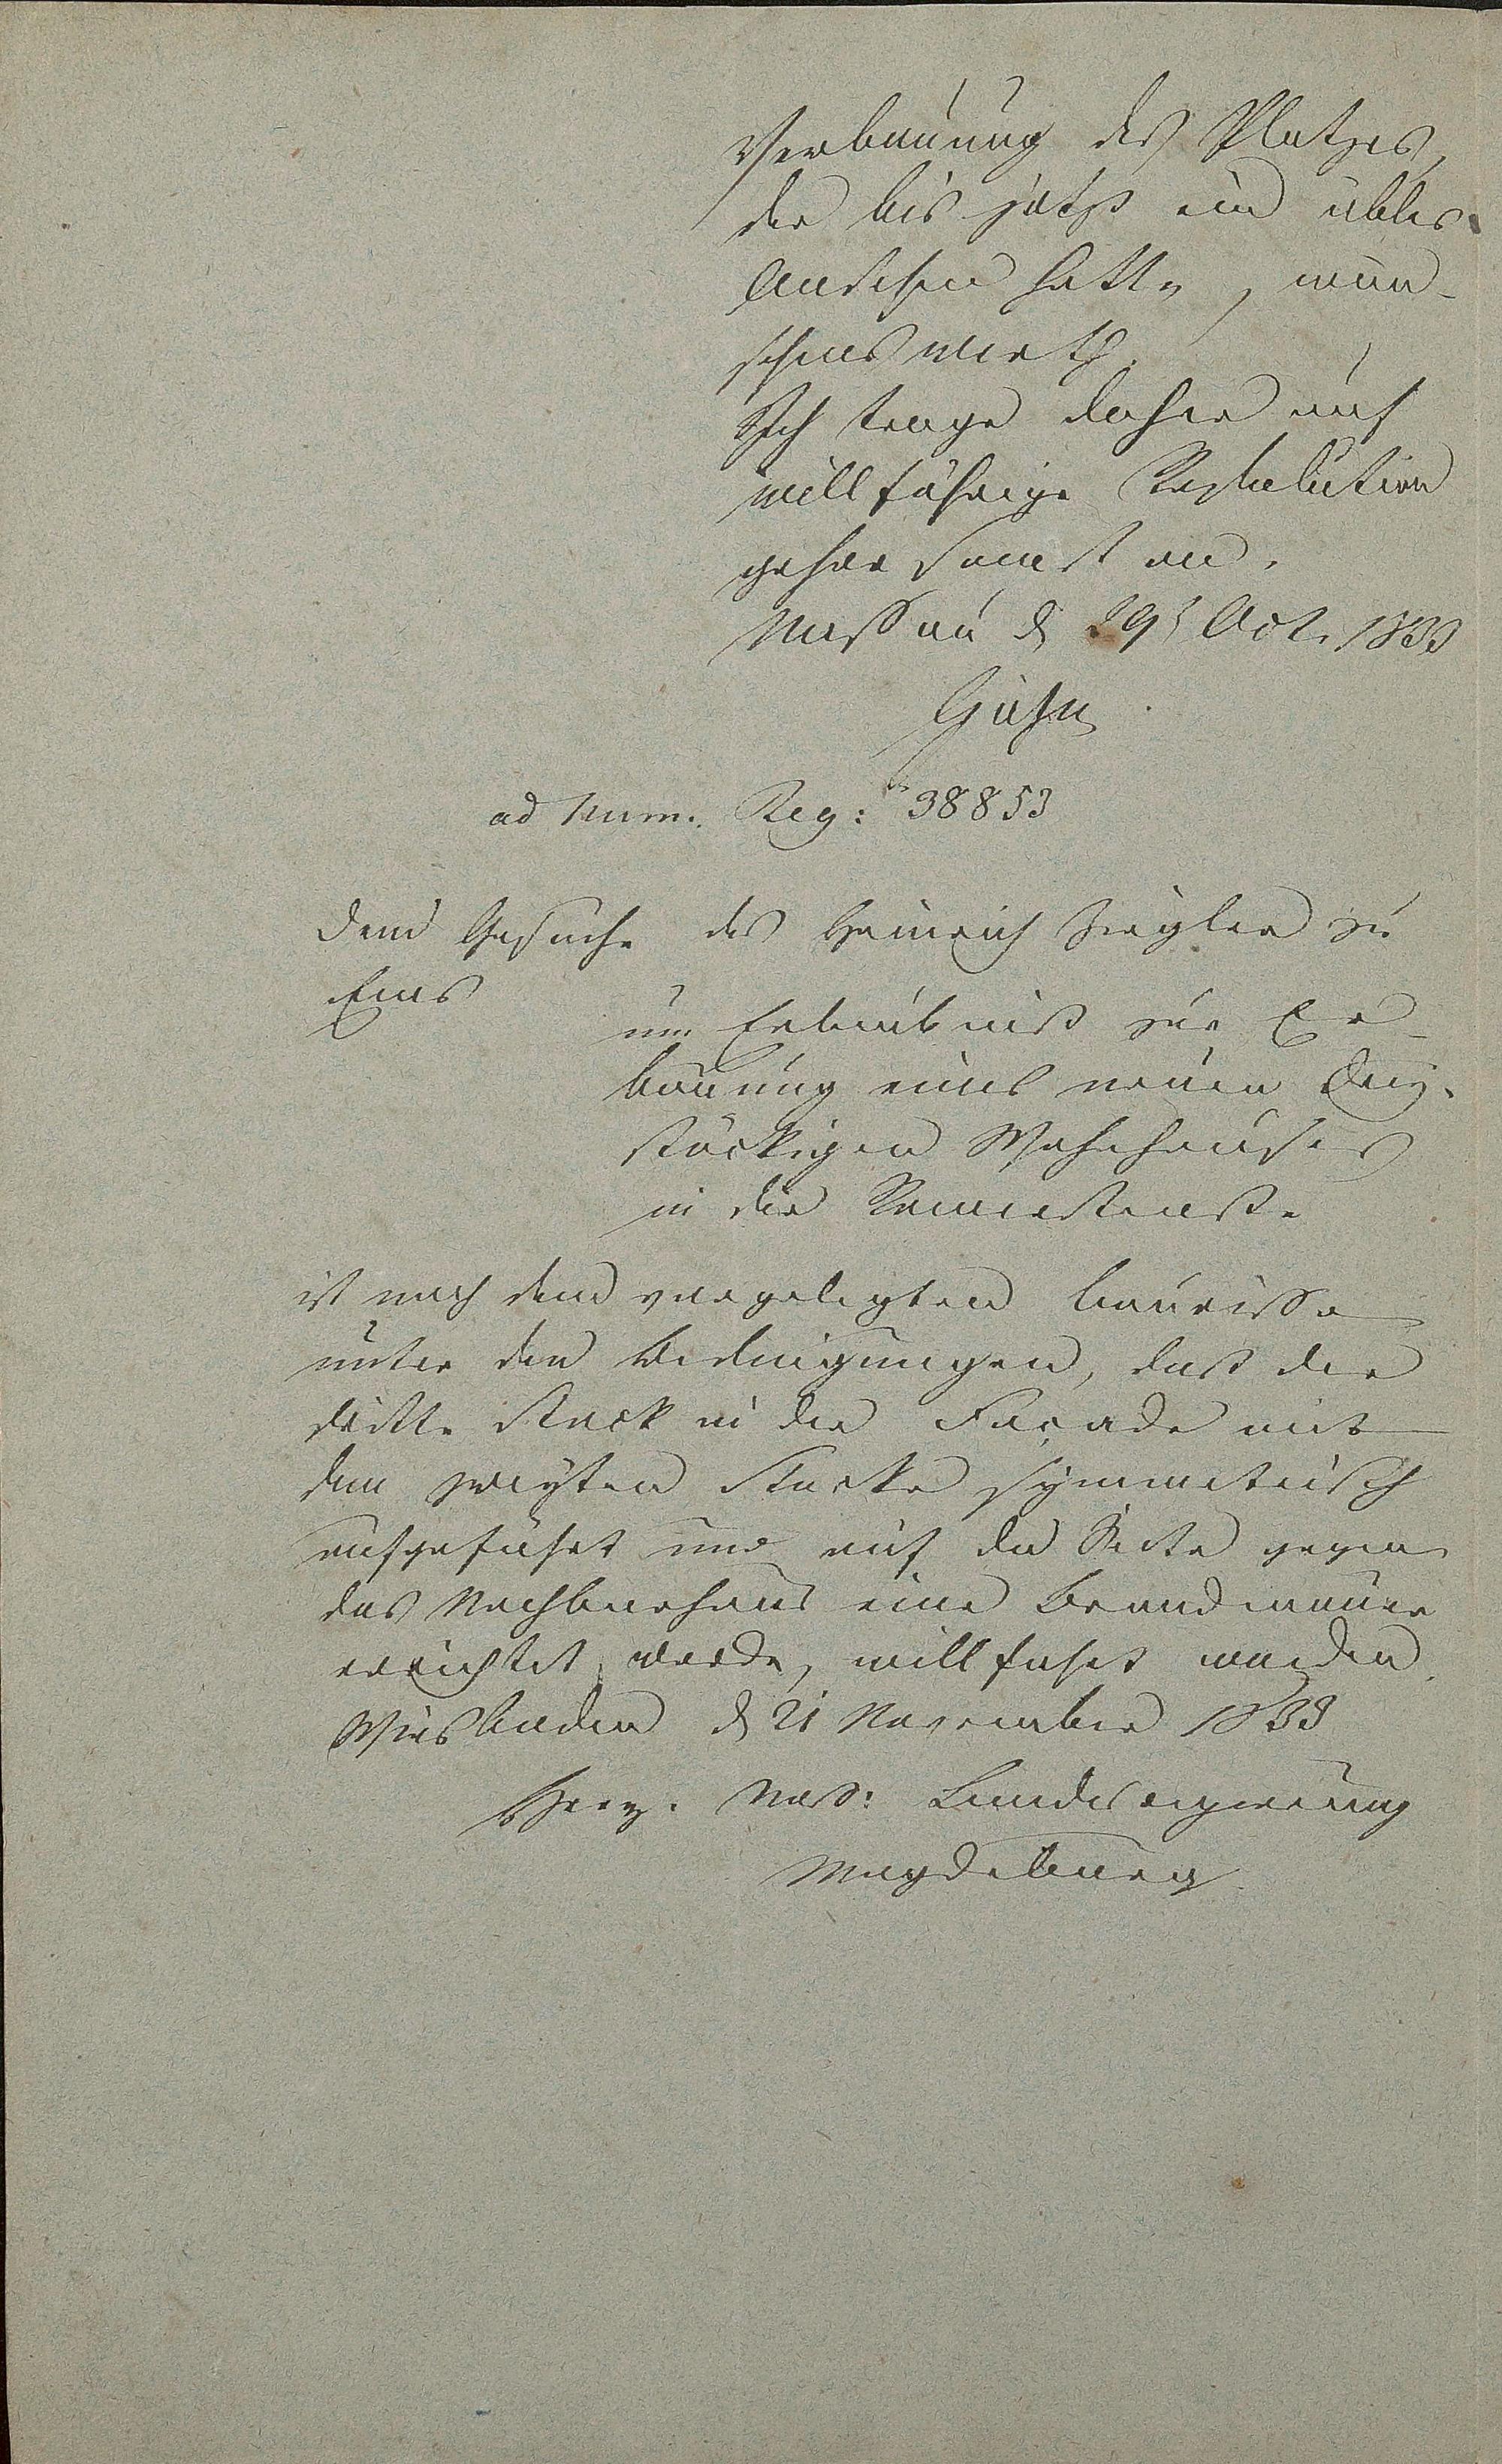 Verbauung des Platzes,
der bis jetzt ein übles
Ansehen hatte, wün-
schenswerth.
Ich trage daher auf
willfährige Resolution
gehorsamst an.
Nassau d 29t Oct. 1833
ad Num. Reg: 38853
Dem Gesuche des Heinrich Ziegler zu
Ems
um Erlaubniß zur Er-
bauung eines neuen drey-
stöckigen Wohnhauses
in der Römerstraße
ist nach dem vorgelegten Baurisse
unter den Bedingungen, daß der
dritte Stock in der Façade mit
dem zweyten Stocke symmetrisch
aufgeführt und auf der Seite gegen
das Nachbarhaus eine Brandmauer
errichtet werde, willfahrt worden.
Wiesbaden d 21 November 1833
Herz. Nass: Landesregierung
Magdeburg